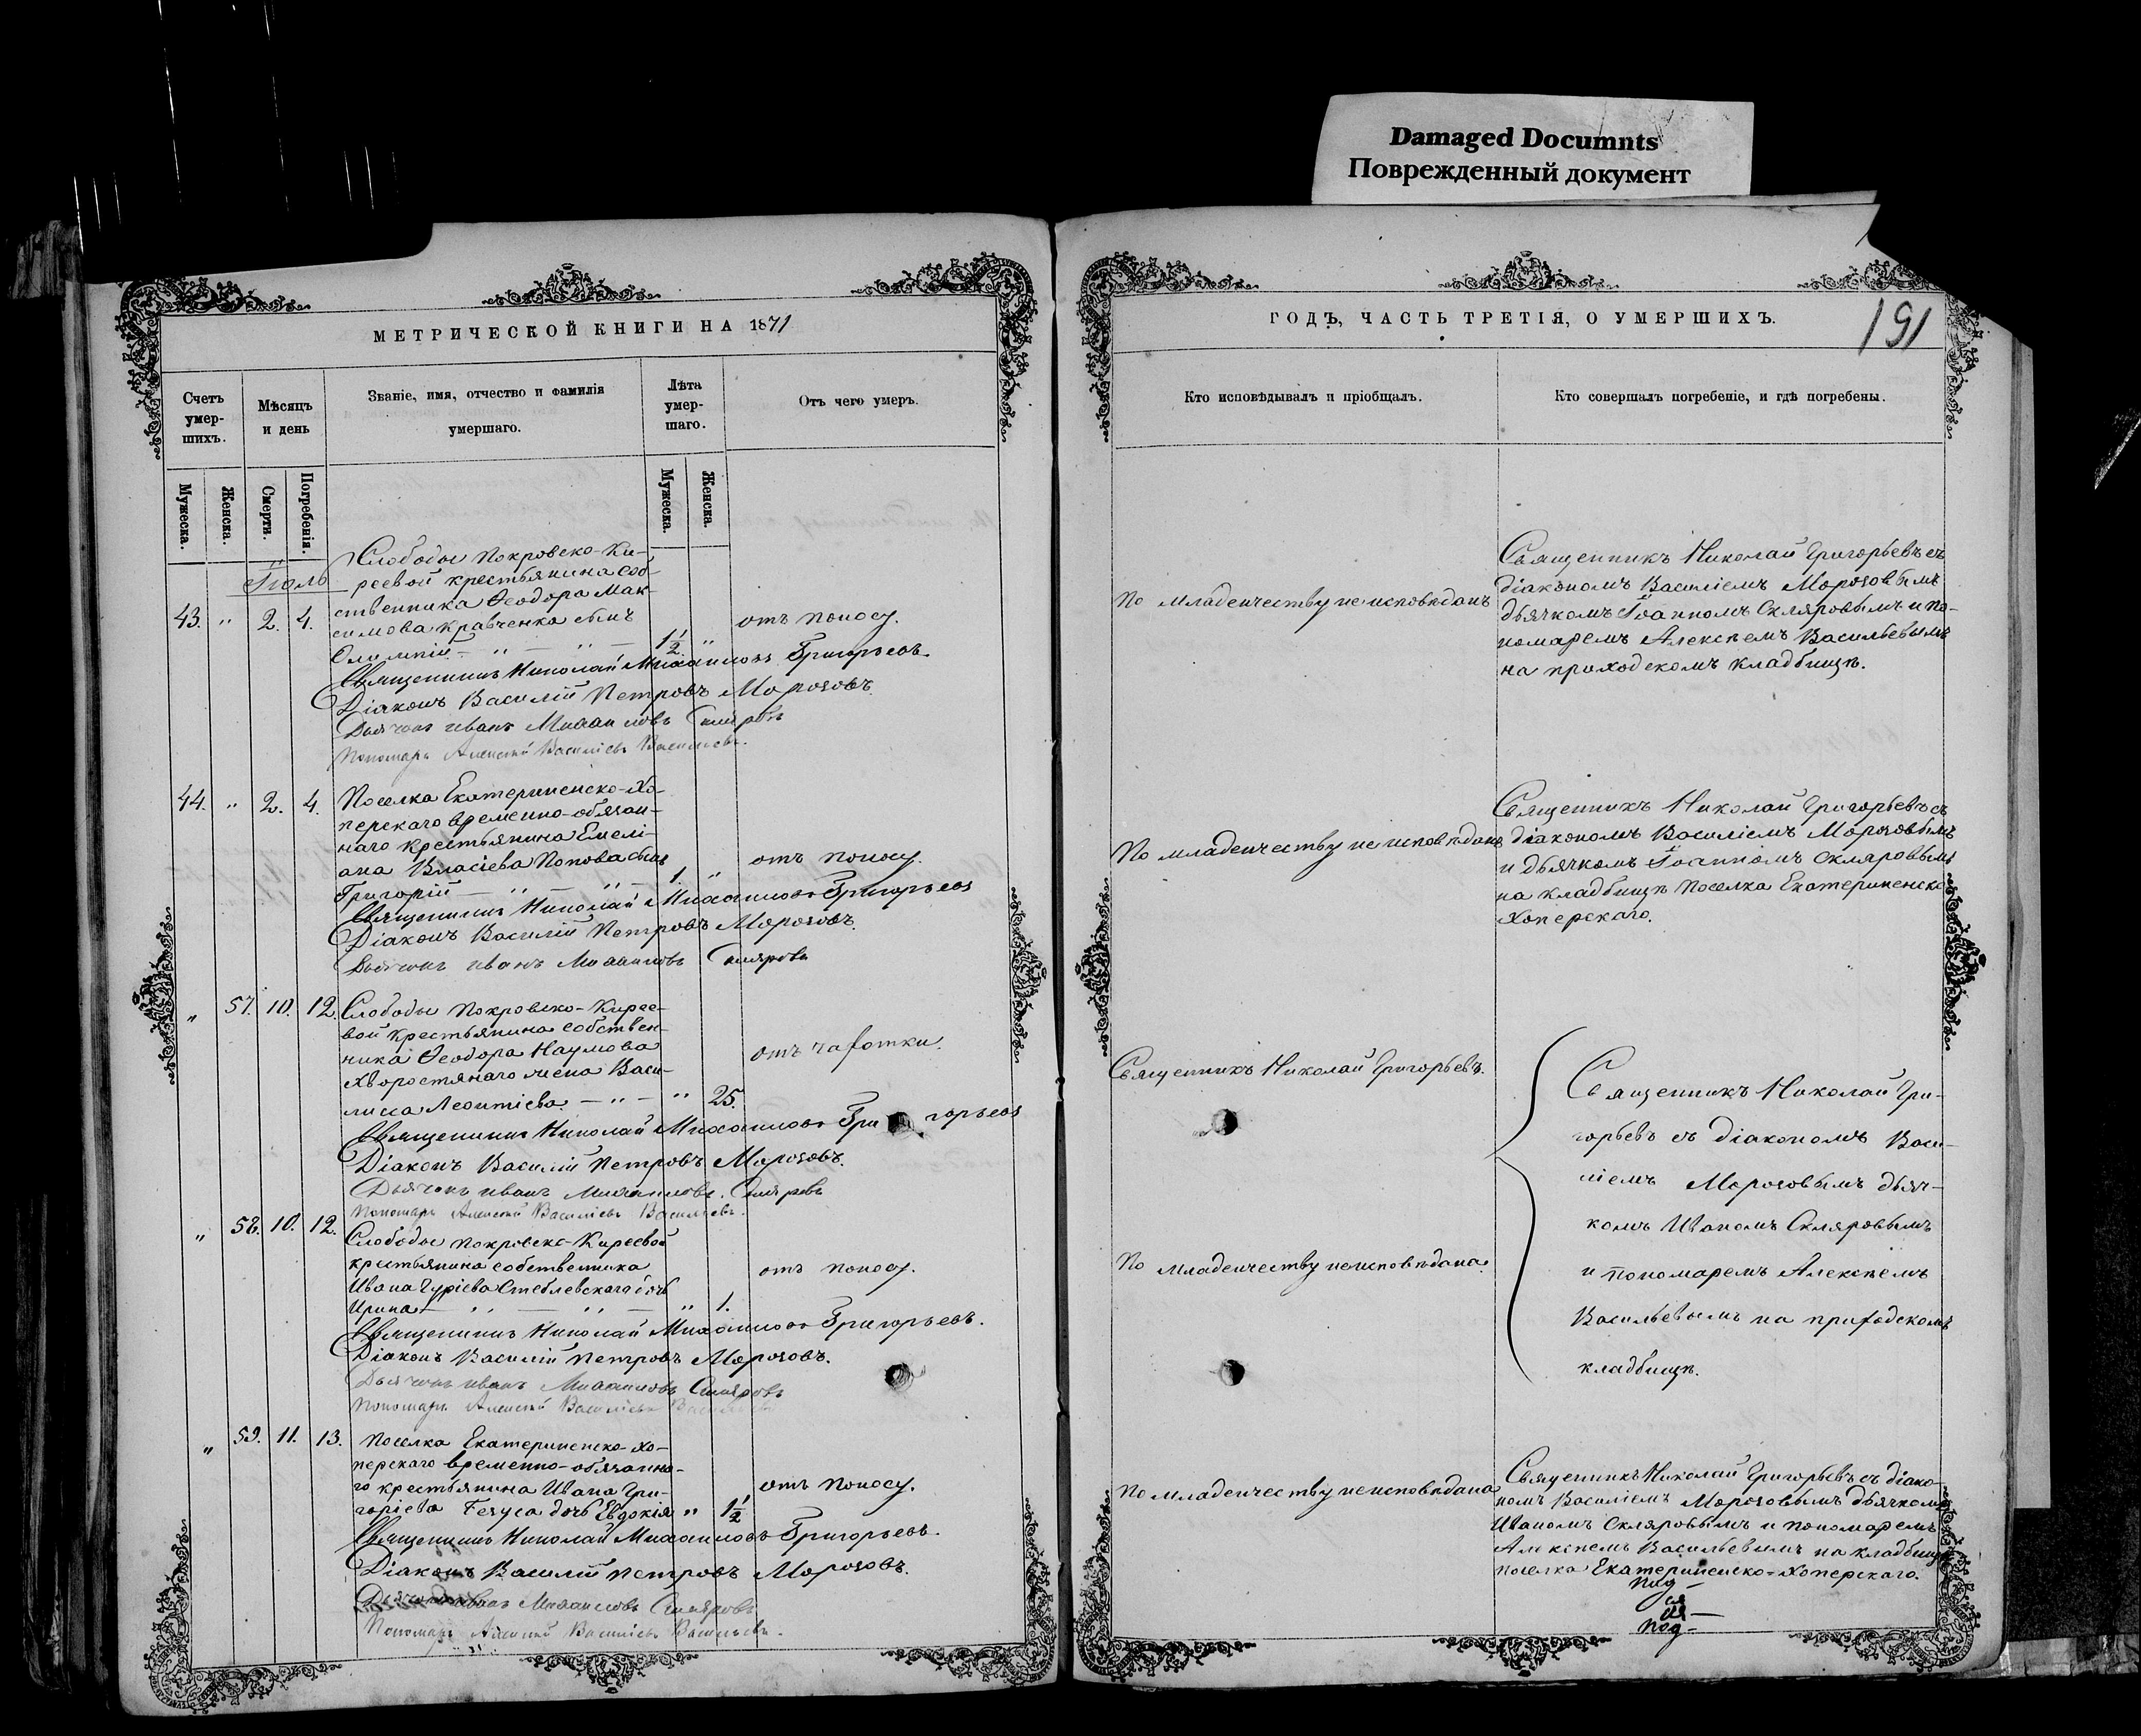 Damaged Documnts
Поврежденный документ
МЕТРИЧЕСКОЙ КНИГИ НА 1871
Счетъ умер-шихъ.
Мѣсяцъ и день
Званіе, имя, отчество и фамилія умершаго.
Лѣта умер-шаго.
Отъ чего умеръ.
Мужеска.
Женска.
Смерти.
Погребенія.
Мужеска.
Женска.
Іюль
43. " 2. 4.
Слободы Покровско-Ки-
реевой крестьянина соб-
ственника Ѳеодора Мак-
симова Кравченка сынъ
Олимпій — " — " — 1½ "
отъ поносу.
Священникъ Николай Михаиловъ Григорьевъ
Діаконъ Василій Петровъ Морозовъ.
Дьячокъ Иванъ Михаиловъ Скляровъ
Пономарь Алексѣй Василіевъ Васильевъ.
44. " 2. 4.
Поселка Екатериненско-Хо-
перскаго временно-обязан-
наго крестьянина Емелі-
ана Власіева Попова сынъ
Григорій — " — " — 1. "
отъ поносу.
Священникъ Николай Михаиловъ Григорьевъ
Діаконъ Василій Петровъ Морозовъ.
Дьячокъ Иванъ Михаиловъ Скляровъ
" 57. 10. 12.
Слободы Покровско-Кирее-
вой крестьянина собствен-
ника Ѳеодора Наумова
Хворостянаго жена Васи-
лиса Леонтіева. — " — " 25.
отъ чахотки.
Священникъ Николай Михаиловъ Григорьевъ
Діаконъ Василій Петровъ Морозовъ.
Дьячокъ Иванъ Михаиловъ Скляровъ
Пономарь Алексѣй Василіевъ Васильевъ.
" 58. 10. 12.
Слободы Покровско-Киреевой
крестьянина собственника
Ивана Гуріева Стеблевскаго дочь
Ирина — " — " — " 1.
отъ поносу.
Священникъ Николай Михаиловъ Григорьевъ.
Діаконъ Василій Петровъ Морозовъ.
Дьячокъ Иванъ Михаиловъ Скляровъ
Пономарь Алексѣй Василіевъ Васильевъ
" 59. 11. 13.
Поселка Екатериненско-Хо-
перскаго временно-обязанна-
го крестьянина Ивана Гри-
горіева дочь Евдокія " 1½
отъ поносу.
Священникъ Николай Михаиловъ Григорьевъ.
Діаконъ Василій Петровъ Морозовъ.
Дьячокъ Иванъ Михаиловъ Скляровъ
Пономарь Алексѣй Василіевъ Васильевъ.
ГОДЪ, ЧАСТЬ ТРЕТІЯ, О УМЕРШИХЪ.
191
Кто исповѣдывалъ и пріобщалъ.
Кто совершалъ погребеніе, и гдѣ погребены.
По младенчеству неисповѣданъ
Священникъ Николай Григорьевъ съ
діакономъ Василіемъ Морозовымъ
дьячкомъ Іоанномъ Скляровымъ и по-
номаремъ Алексѣемъ Васильевымъ
на приходскомъ кладбищѣ.
По младенчеству неисповѣданъ
Священникъ Николай Григорьевъ съ
діакономъ Василіемъ Морозовымъ
и дьячкомъ Іоанномъ Скляровымъ
на кладбищѣ поселка Екатериненско
Хоперскаго.
Священникъ Николай Григорьевъ.
По младенчеству неисповѣдана.
Священникъ Николай Гри-
горьевъ съ діакономъ Васи-
ліемъ Морозовымъ дьяч-
комъ Иваномъ Скляровымъ
и пономаремъ Алексѣемъ
Васильевымъ на приходскомъ
кладбищѣ.
По младенчеству неисповѣдана
Священникъ Николай Григорьевъ съ діако-
номъ Василіемъ Морозовымъ дьячкомъ
Иваномъ Скляровымъ и пономаремъ
Алексѣемъ Васильевымъ на кладбищѣ
поселка Екатериненско-Хоперскаго.